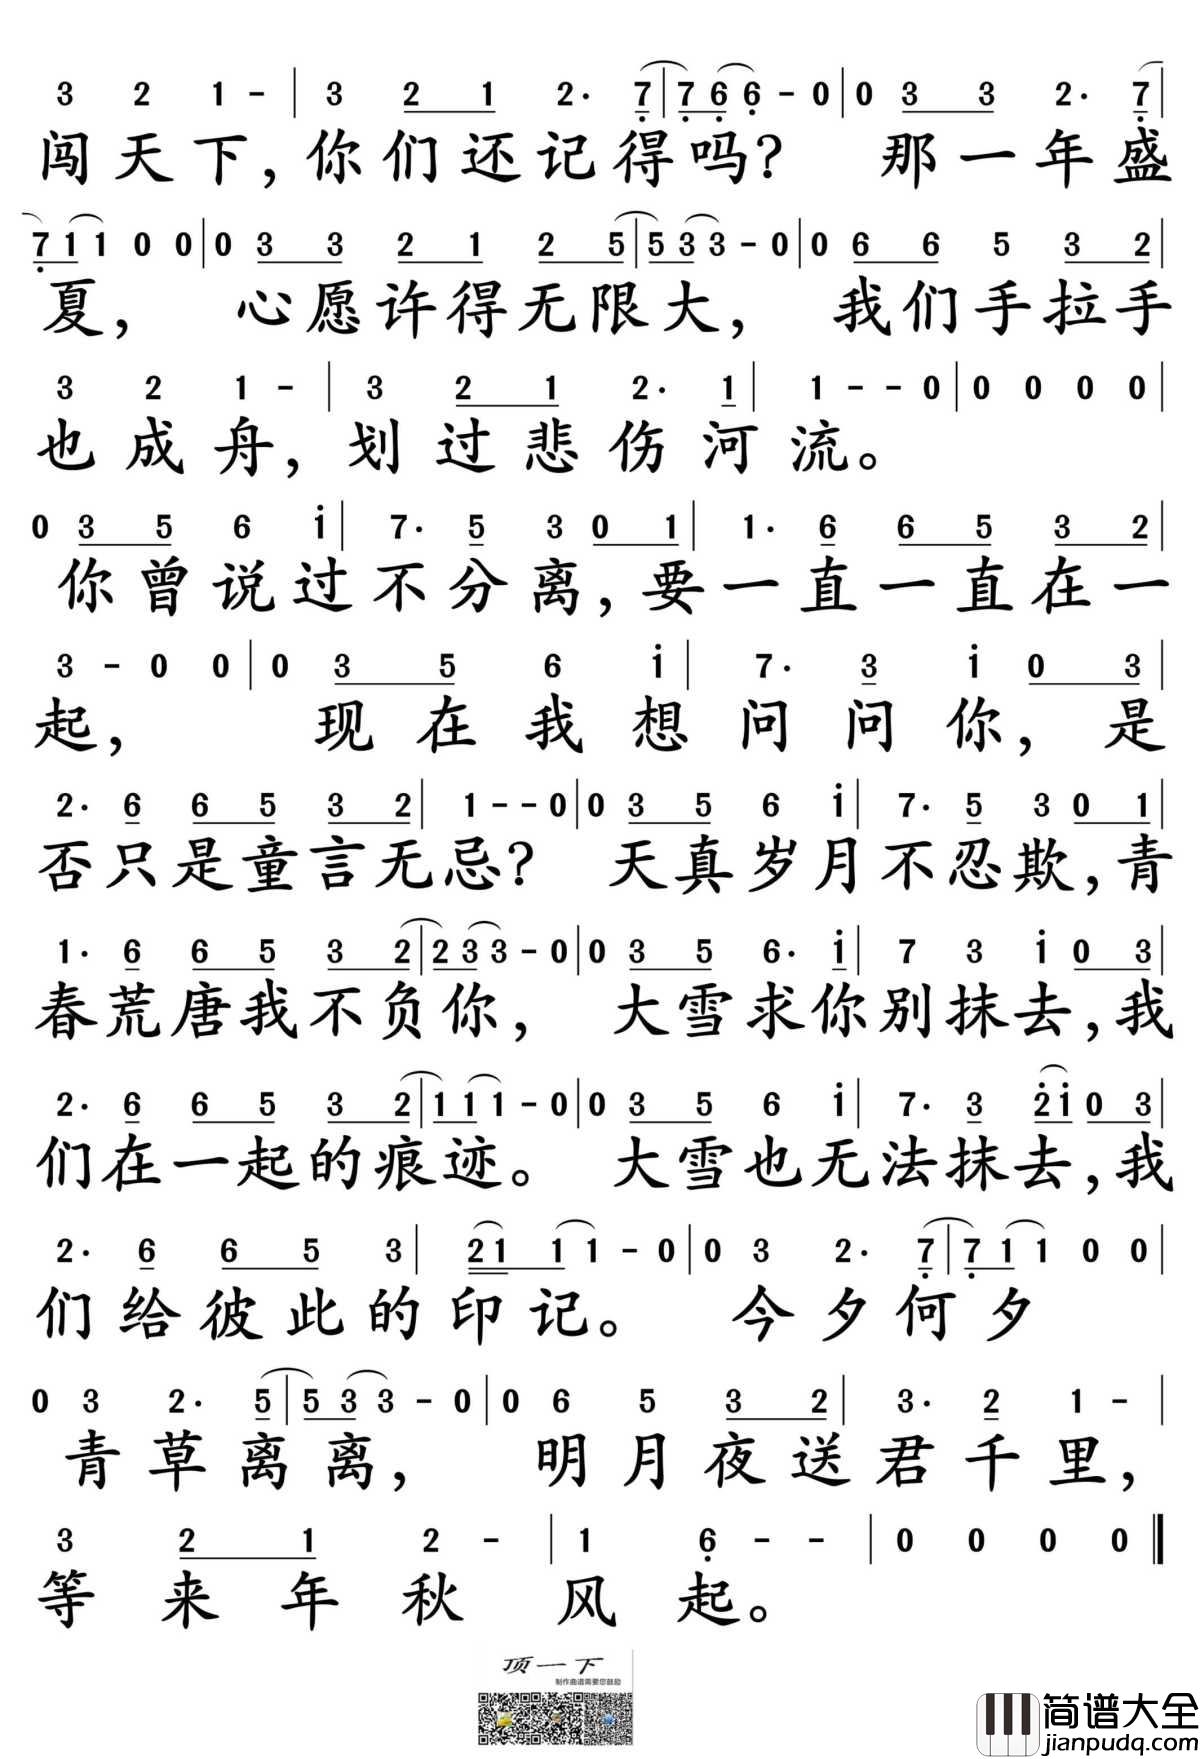 3 2 1 - | 3 2 1 2· 7 | 7 6 6 - 0 | 0 3 3 2· 7 |
闯天下,你们还记得吗? 那一年盛
7 1 1 0 0 | 0 3 3 2 1 2 5 | 5 3 3 - 0 | 0 6 6 5 3 2 |
夏, 心愿许得无限大, 我们手拉手
3 2 1 - | 3 2 1 2· 1 | 1 - - 0 | 0 0 0 0 |
也成舟,划过悲伤河流。
0 3 5 6 i | 7· 5 3 0 1 | 1· 6 6 5 3 2 |
你曾说过不分离,要一直一直在一
3 - 0 0 | 0 3 5 6 i | 7· 3 i 0 3 |
起, 现在我想问问你,是
2· 6 6 5 3 2 | 1 - - 0 | 0 3 5 6 i | 7· 5 3 0 1 |
否只是童言无忌? 天真岁月不忍欺,青
1· 6 6 5 3 2 | 2 3 3 - 0 | 0 3 5 6· i | 7 3 i 0 3 |
春荒唐我不负你, 大雪求你别抹去,我
2· 6 6 5 3 2 | 1 1 1 - 0 | 0 3 5 6 i | 7· 3 2 i 0 3 |
们在一起的痕迹。 大雪也无法抹去,我
2· 6 6 5 3 | 2 1 1 1 - 0 | 0 3 2· 7 | 7 1 1 0 0 |
们给彼此的印记。 今夕何夕
0 3 2· 5 | 5 3 3 - 0 | 0 6 5 3 2 | 3· 2 1 - |
青草离离, 明月夜送君千里,
3 2 1 2 - | 1 6 - - | 0 0 0 0 ‖
等来年秋风起。
顶一下
制作曲谱需要您鼓励
简谱大全
jianpudq.com